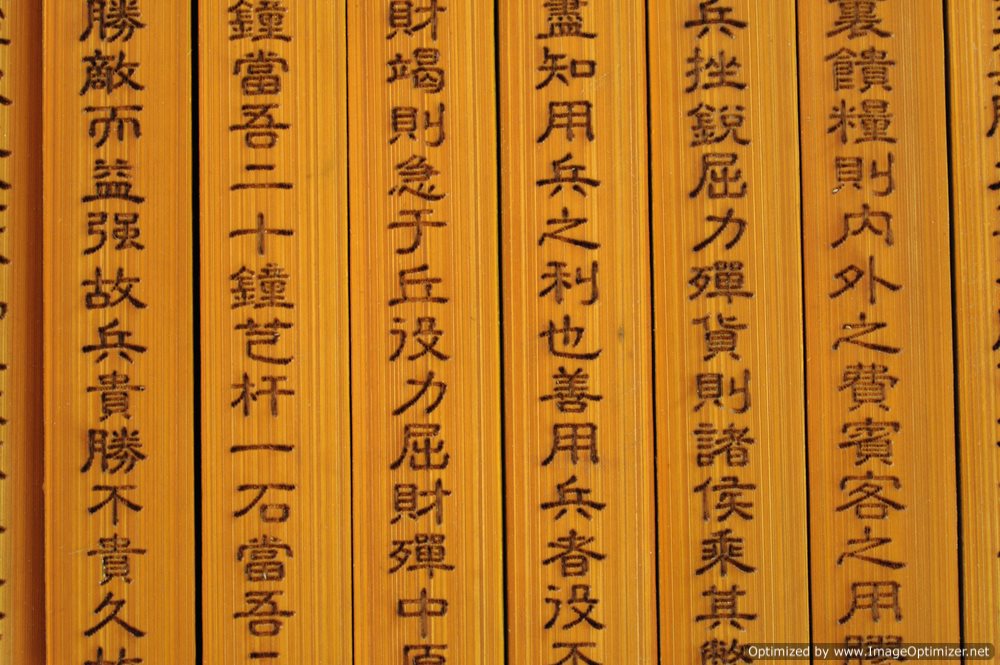 裏饋糧則內外之費賓客之用膠
兵挫銳屈力殫貨則諸侯乘其敝
盡知用兵之利也善用兵者役不
財竭則急于丘役力屈財殫中原
鐘當吾二十鐘芑杆一石當吾二
勝敵而益强故兵貴勝不貴久故
Optimized by www.ImageOptimizer.net